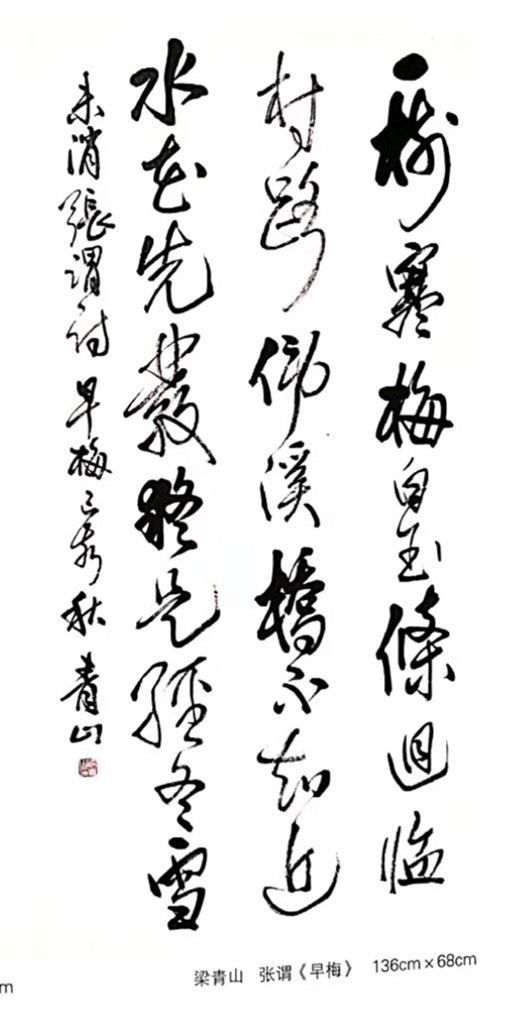 一樹寒梅白玉條迴临
村路傍溪橋不知近
水花先發疑是經冬雪
未消張謂詩早梅己亥秋 青山
梁青山 张谓《早梅》 136cm×68cm
m